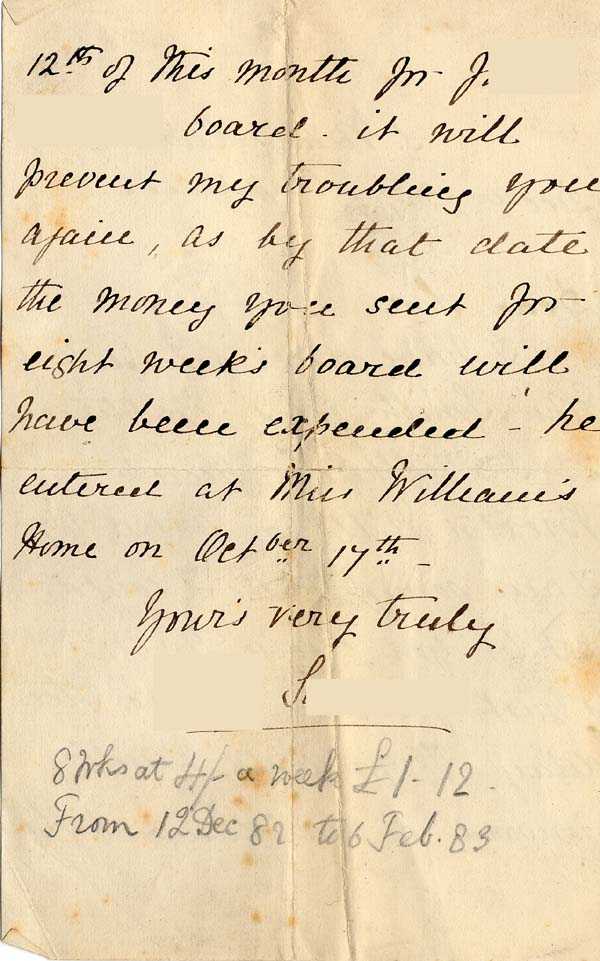 12th of this month for J.
board. it will
prevent my troubling you
again, as by that date
the money you sent for
eight week's board will
have been expended - he
entered at Miss William's
Home on October 17th -
Your's very truly
S.
8 wks at 4/- a week £1-12.
From 12 Dec 82 to 6 Feb. 83